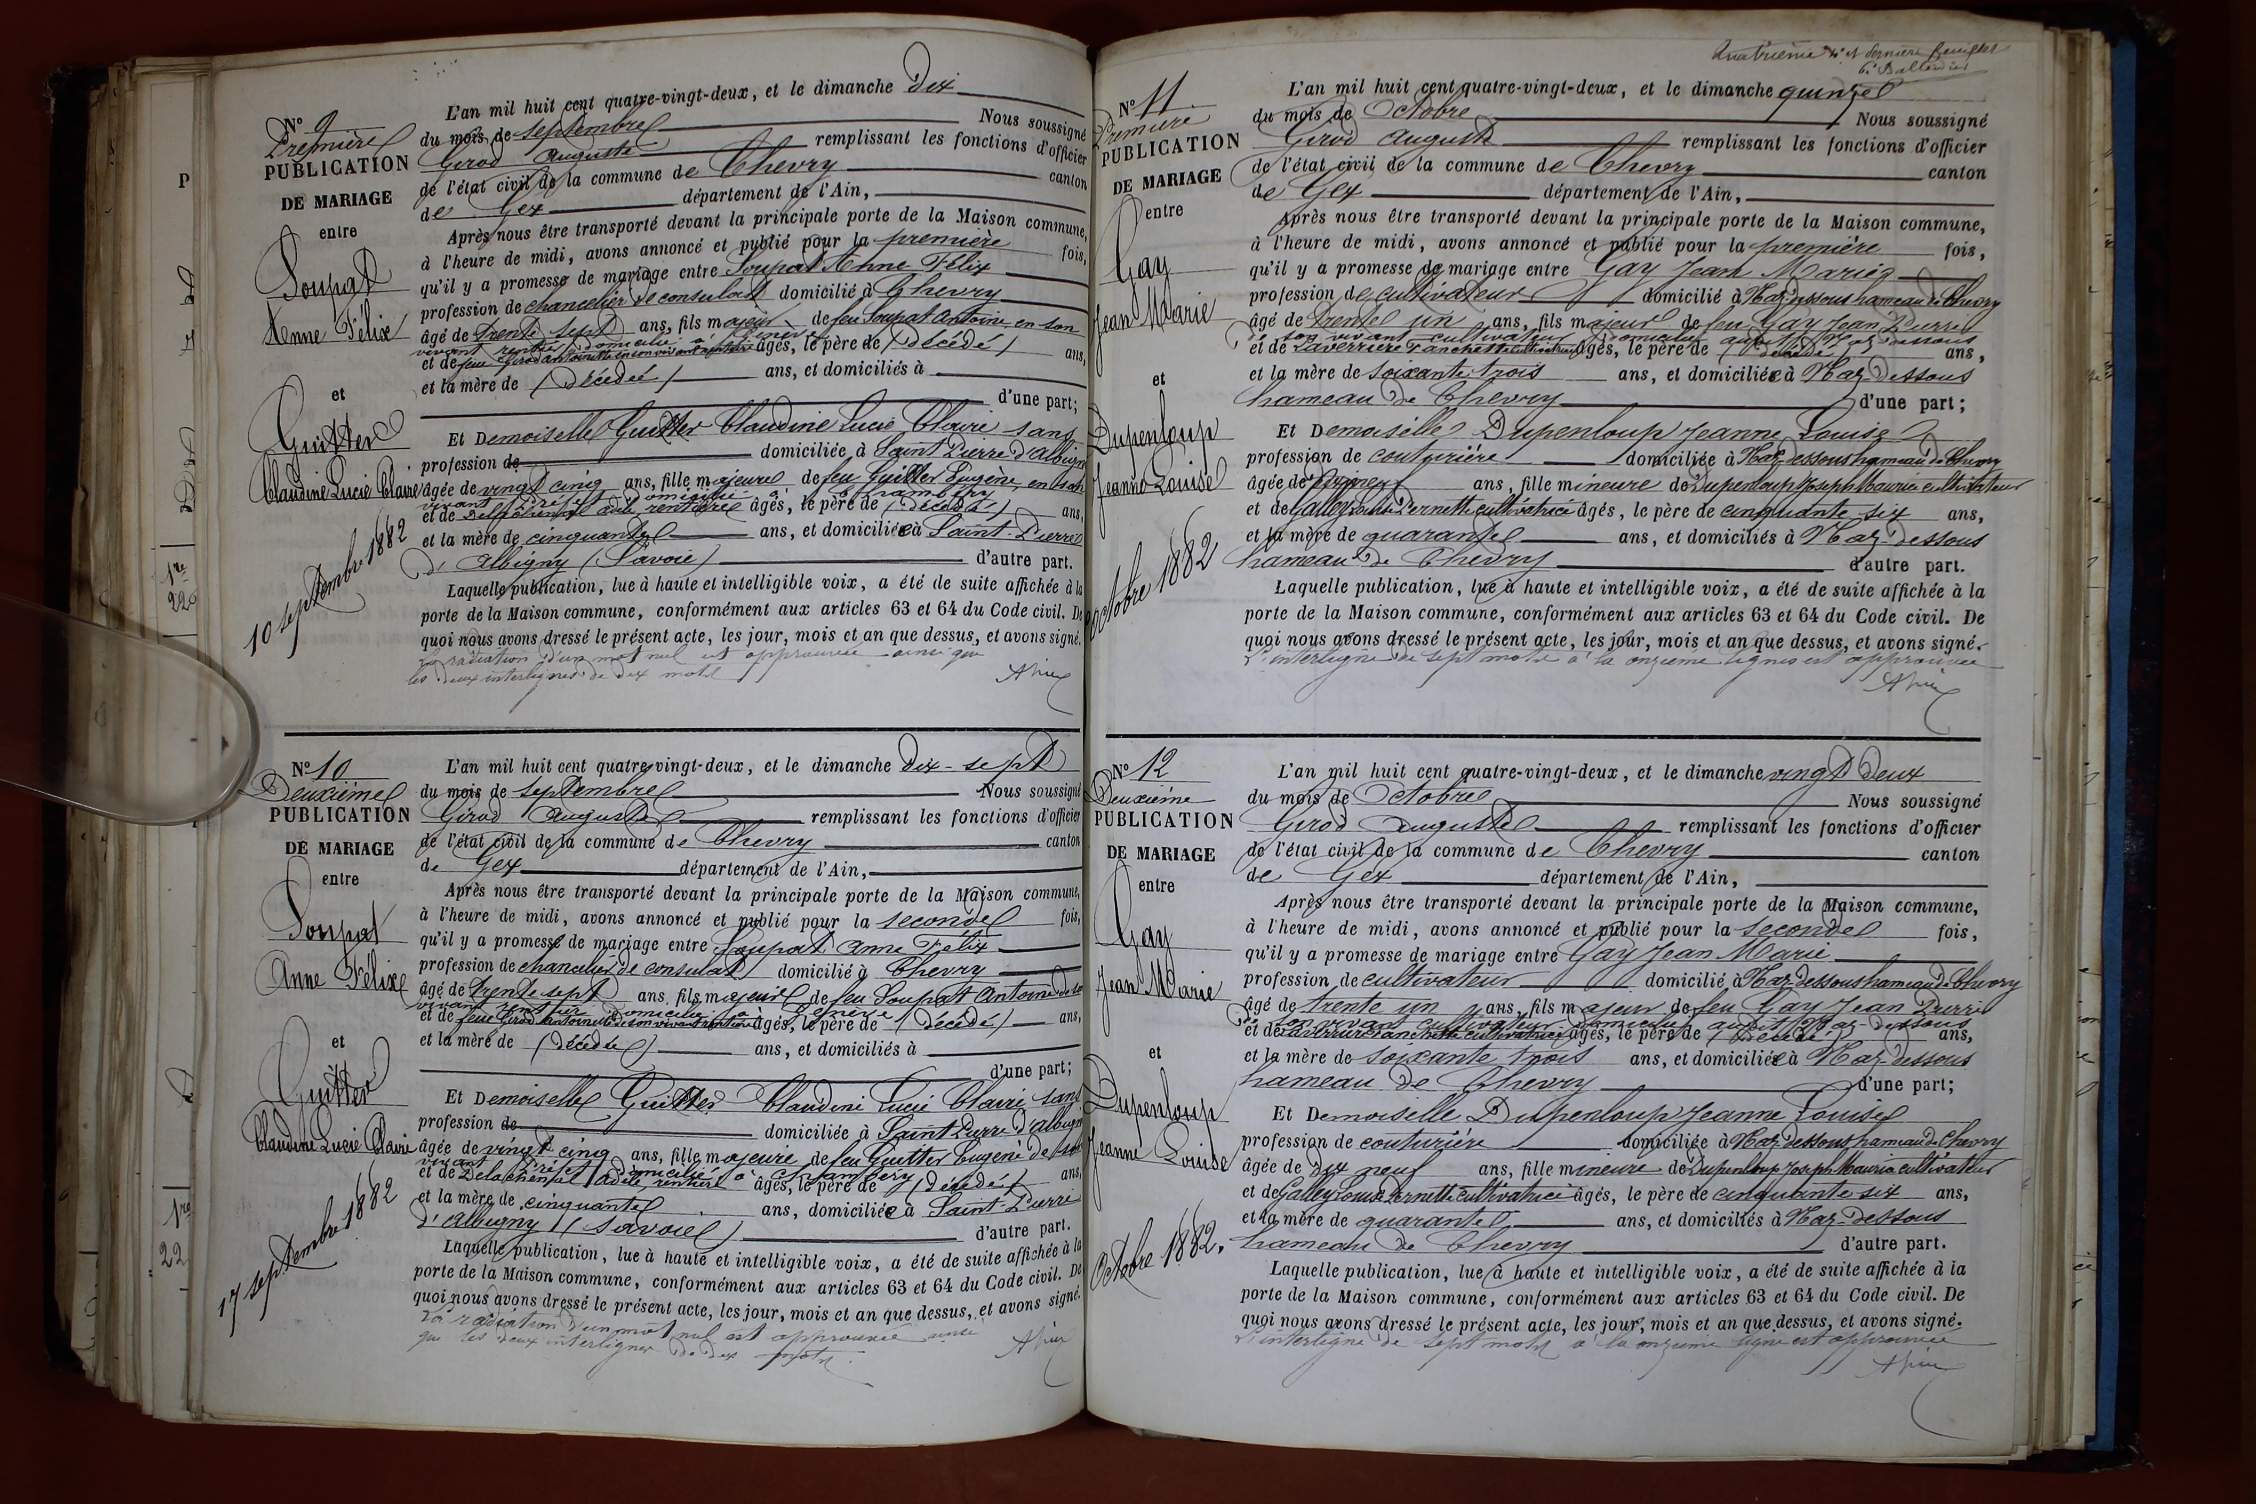 N° 9
Première
PUBLICATION
DE MARIAGE
entre
Soupat
Anne Félix
et
Guitter
Claudine Lucie Claire
10 septembre 1882
L'an mil huit cent quatre-vingt-deux, et le dimanche dix
du mois de septembre Nous soussigné
Girod Auguste remplissant les fonctions d'officier
de l'état civil de la commune de Chevry canton
de Gex département de l'Ain,
Après nous être transporté devant la principale porte de la Maison commune,
à l'heure de midi, avons annoncé et publié pour la première fois,
qu'il y a promesse de mariage entre Soupat Anne Félix
profession de chancelier de consulat domicilié à Chevry
âgé de trente sept ans, fils majeur de feu Soupat Antoine en son
vivant rentier domicilié à Genève
et de feue Girod Antoinette en son vivant rentière âgés, le père de (décédé) ans,
et la mère de (décédée) ans, et domiciliés à
d'une part;
Et Demoiselle Guitter Claudine Lucie Claire sans
profession de domiciliée à Saint Pierre d'Albigny
âgée de vingt cinq ans, fille majeure de feu Guitter Eugène en son
vivant préfet domicilié à Chambéry
et de Delachenal Adèle rentière âgés, le père de (décédé) ans,
et la mère de cinquante ans, et domiciliée à Saint-Pierre
d'Albigny (Savoie) d'autre part.
Laquelle publication, lue à haute et intelligible voix, a été de suite affichée à la
porte de la Maison commune, conformément aux articles 63 et 64 du Code civil. De
quoi nous avons dressé le présent acte, les jour, mois et an que dessus, et avons signé.
La radiation d'un mot nul est approuvée ainsi que
les deux interlignes de dix mots
N° 10
Deuxième
PUBLICATION
DE MARIAGE
entre
Soupat
Anne Félix
et
Guitter
Claudine Lucie Claire
17 septembre 1882
L'an mil huit cent quatre-vingt-deux, et le dimanche dix-sept
du mois de septembre Nous soussigné
Girod Auguste remplissant les fonctions d'officier
de l'état civil de la commune de Chevry canton
de Gex département de l'Ain,
Après nous être transporté devant la principale porte de la Maison commune,
à l'heure de midi, avons annoncé et publié pour la seconde fois,
qu'il y a promesse de mariage entre Soupat Anne Félix
profession de chancelier de consulat domicilié à Chevry
âgé de trente sept ans, fils majeur de feu Soupat Antoine de son
vivant rentier domicilié à Genève
et de feue Girod Antoinette de son vivant rentière âgés, le père de (décédé) ans,
et la mère de (décédée) ans, et domiciliés à
d'une part;
Et Demoiselle Guitter Claudine Lucie Claire sans
profession de domiciliée à Saint Pierre d'Albigny
âgée de vingt cinq ans, fille majeure de feu Guitter Eugène de son
vivant préfet domicilié à Chambéry
et de Delachenal Adèle rentière âgés, le père de (décédé) ans,
et la mère de cinquante ans, domiciliée à Saint-Pierre
d'Albigny (Savoie) d'autre part.
Laquelle publication, lue à haute et intelligible voix, a été de suite affichée à la
porte de la Maison commune, conformément aux articles 63 et 64 du Code civil. De
quoi nous avons dressé le présent acte, les jour, mois et an que dessus, et avons signé.
La radiation d'un mot nul est approuvée ainsi
que les deux interlignes de dix mots.
Quatrième et dernière feuillet
N° 11
Première
PUBLICATION
DE MARIAGE
entre
Gay
Jean Marie
et
Dupenloup
Jeanne Louise
octobre 1882
L'an mil huit cent quatre-vingt-deux, et le dimanche quinze
du mois de Octobre Nous soussigné
Girod Auguste remplissant les fonctions d'officier
de l'état civil de la commune de Chevry canton
de Gex département de l'Ain,
Après nous être transporté devant la principale porte de la Maison commune,
à l'heure de midi, avons annoncé et publié pour la première fois,
qu'il y a promesse de mariage entre Gay Jean Marie
profession de cultivateur domicilié à Naz-dessous hameau de Chevry
âgé de trente un ans, fils majeur de feu Gay Jean Pierre
de son vivant cultivateur domicilié audit Naz-dessous
et de Laverrière Fanchette cultivatrice âgés, le père de (décédé) ans,
et la mère de soixante trois ans, et domiciliée à Naz-dessous
hameau de Chevry d'une part;
Et Demoiselle Dupenloup Jeanne Louise
profession de couturière domiciliée à Naz-dessous hameau de Chevry
âgée de dix neuf ans, fille mineure de Dupenloup Joseph Maurice cultivateur
et de Galley Louise Pernette cultivatrice âgés, le père de cinquante six ans,
et la mère de quarante ans, et domiciliés à Naz-dessous
hameau de Chevry d'autre part.
Laquelle publication, lue à haute et intelligible voix, a été de suite affichée à la
porte de la Maison commune, conformément aux articles 63 et 64 du Code civil. De
quoi nous avons dressé le présent acte, les jour, mois et an que dessus, et avons signé.
L'interligne de sept mots à la onzième ligne est approuvée
N° 12
Deuxième
PUBLICATION
DE MARIAGE
entre
Gay
Jean Marie
et
Dupenloup
Jeanne Louise
Octobre 1882.
L'an mil huit cent quatre-vingt-deux, et le dimanche vingt deux
du mois de Octobre Nous soussigné
Girod Auguste remplissant les fonctions d'officier
de l'état civil de la commune de Chevry canton
de Gex département de l'Ain,
Après nous être transporté devant la principale porte de la Maison commune,
à l'heure de midi, avons annoncé et publié pour la seconde fois,
qu'il y a promesse de mariage entre Gay Jean Marie
profession de cultivateur domicilié à Naz-dessous hameau de Chevry
âgé de trente un ans, fils majeur de feu Gay Jean Pierre
de son vivant cultivateur domicilié audit Naz-dessous
et de Laverrière Fanchette cultivatrice âgés, le père de (décédé) ans,
et la mère de soixante trois ans, et domiciliée à Naz-dessous
hameau de Chevry d'une part;
Et Demoiselle Dupenloup Jeanne Louise
profession de couturière domiciliée à Naz-dessous hameau de Chevry
âgée de dix neuf ans, fille mineure de Dupenloup Joseph Maurice cultivateur
et de Galley Louise Pernette cultivatrice âgés, le père de cinquante six ans,
et la mère de quarante ans, et domiciliés à Naz-dessous
hameau de Chevry d'autre part.
Laquelle publication, lue à haute et intelligible voix, a été de suite affichée à la
porte de la Maison commune, conformément aux articles 63 et 64 du Code civil. De
quoi nous avons dressé le présent acte, les jour, mois et an que dessus, et avons signé.
L'interligne de sept mots à la onzième ligne est approuvée